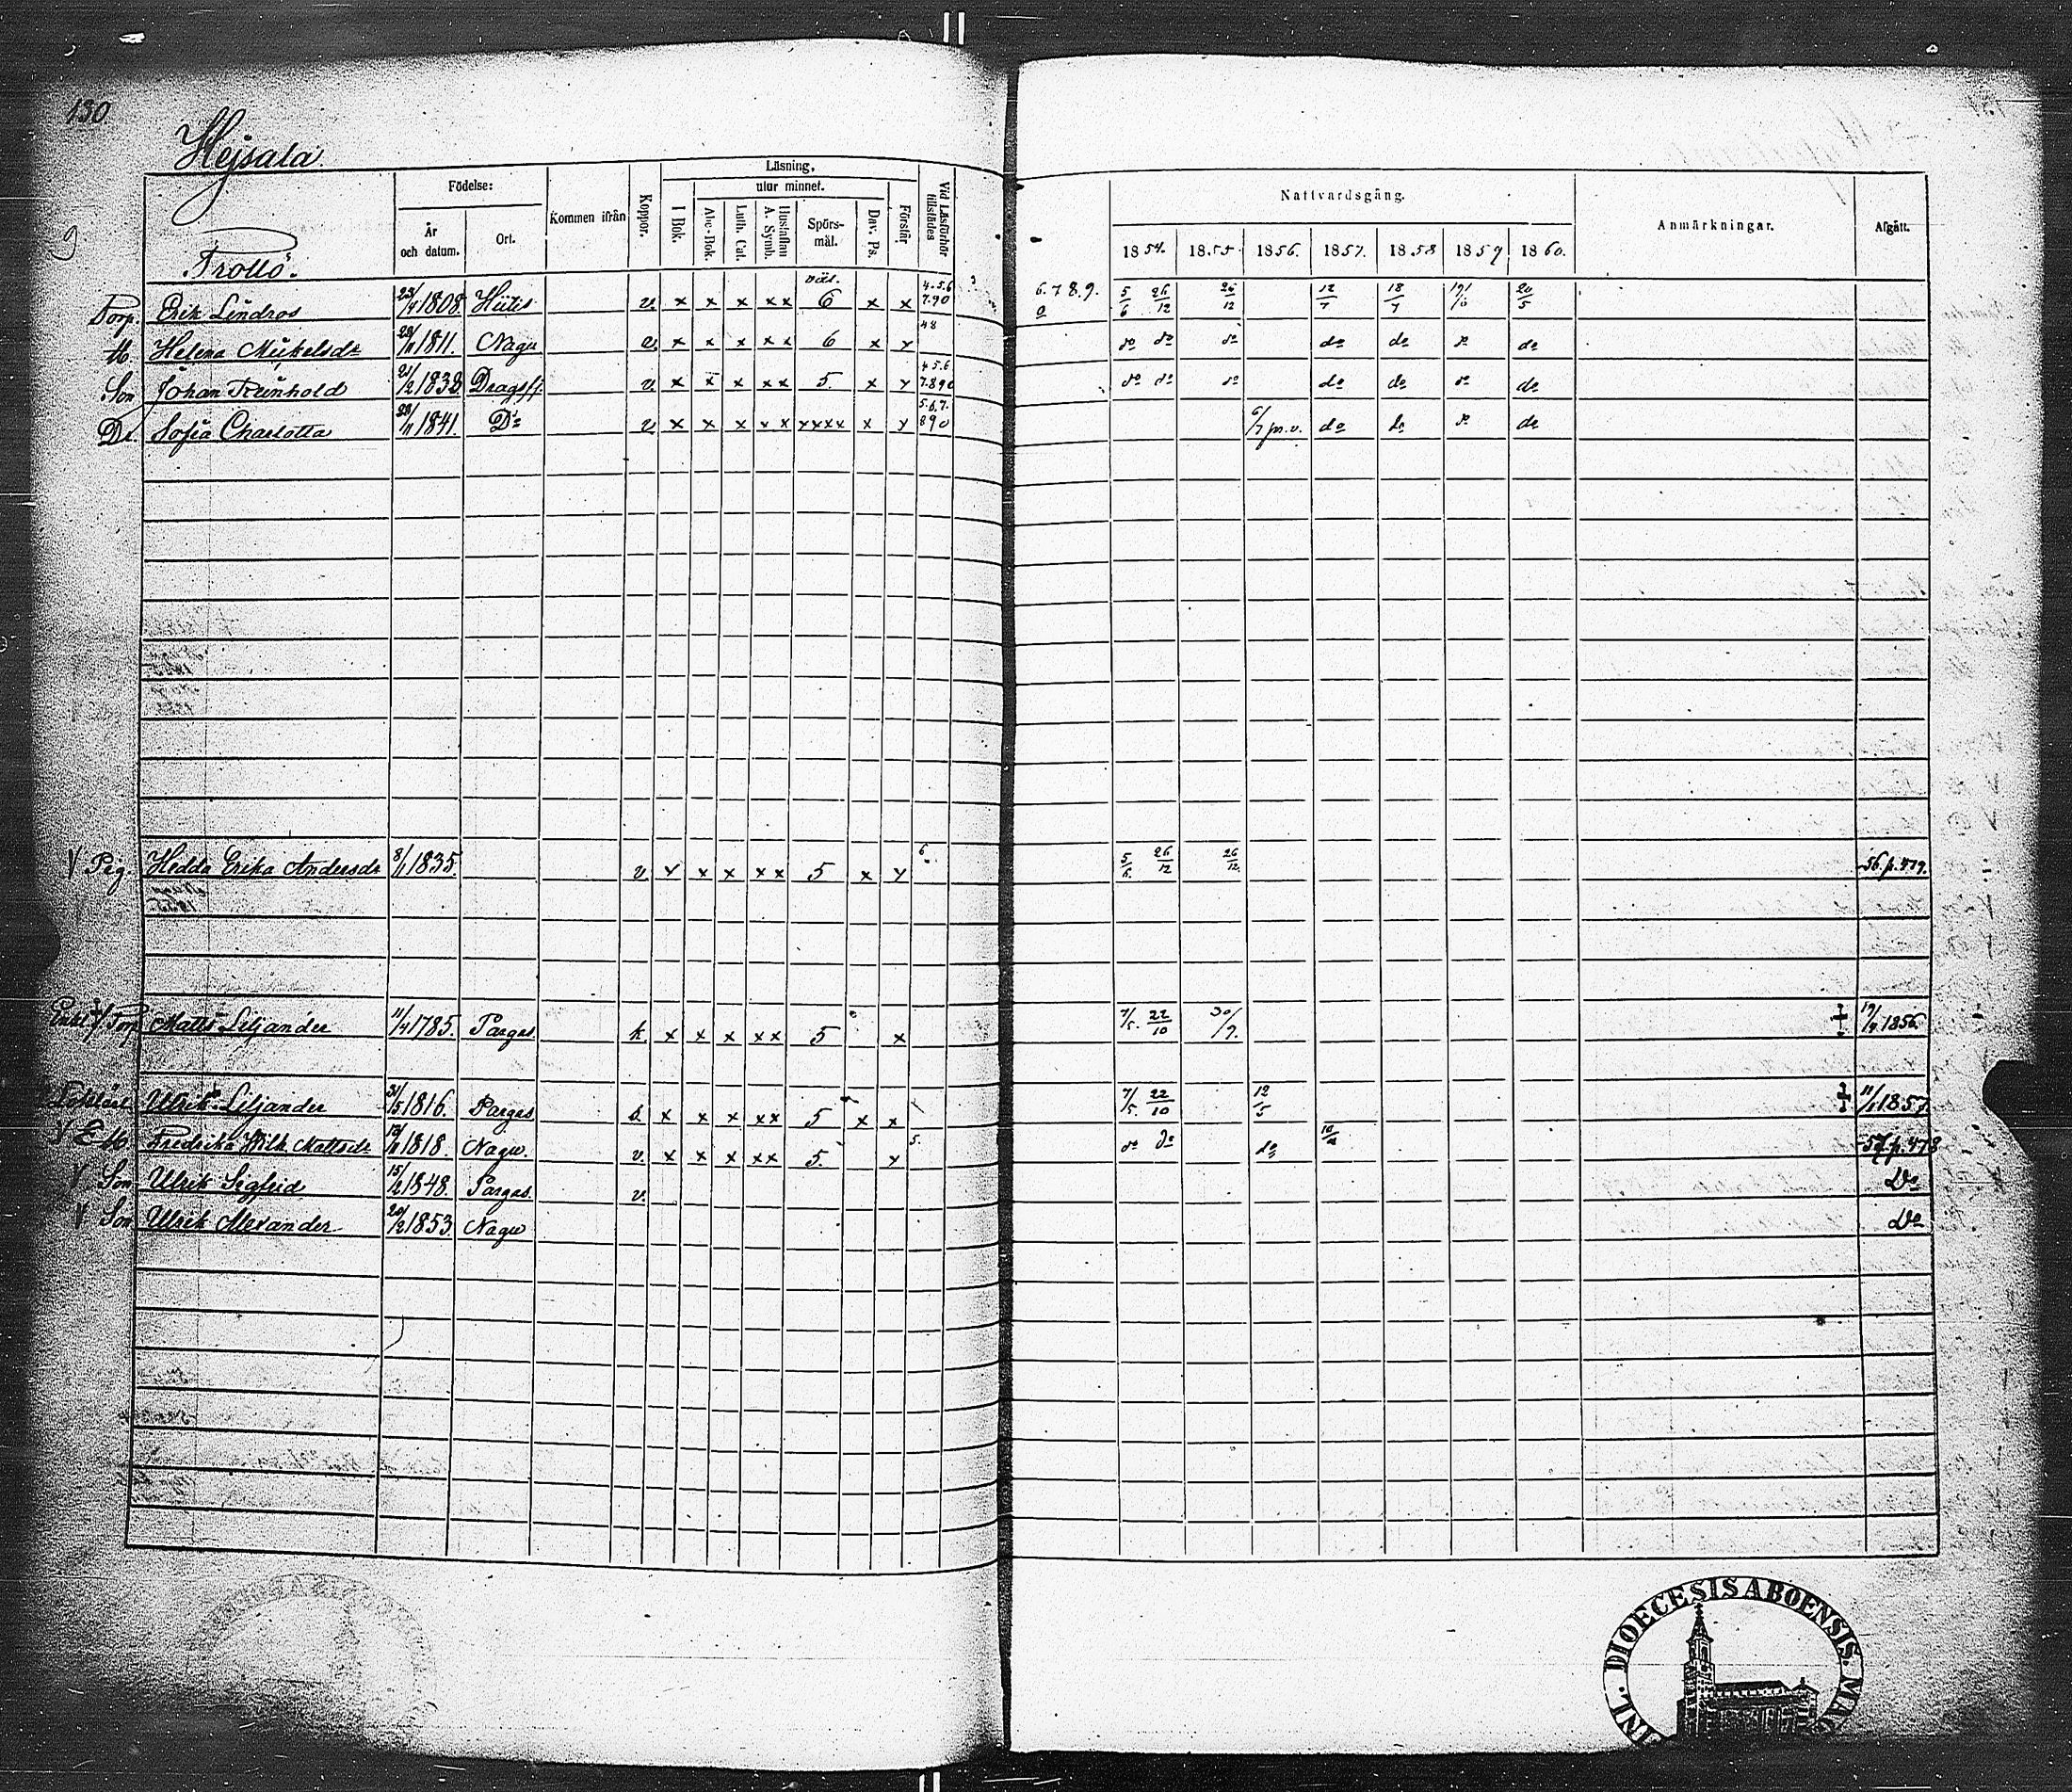 130
Hejsala
9.
Födelse:
År och datum.
Ort.
Kommen ifrån
Koppor.
Läsning,
I Bok.
utur minnet.
Abc-Bok.
Luth. Cat.
Hustaflan A. Symb.
Spörs-mål.
Dav. Ps.
Förstår
Vid Läsförhör tillstädes
Nattvardsgång.
1854. 1855. 1856. 1857. 1858 1859 1860.
Anmärkningar.
Afgått.
Trollö.
Torp. Erik Lindros 23/4 1808. Hiitis v. x x x x x 6 x x 4.5.6 7.90 6.7 8.9. 0 5/6 26/12 26/12 12/7 18/7 20/5
H. Helena Mickelsdr 1811. Nagu v. x x x x x 6 x x 48 do do do do do do do
Son Johan Reinhold 1838 Dragsfj. v. x x x x x 5. x x 4 5.6 7.890 do do do do do do do
Dr. Sofia Charlotta 1841. Do v. x x x x x xxxx x x 5.6.7. 890 6/7 pr.v. do do do do
V Pig. Hedda Erika Andersdr 8/11 1835. v. x x x x x 5 x x 6. 5/6. 26/12 26/12. -56.p.479.
Matts Liljander 11/4 1785. Pargas. k. x x x x x 5 x 7/5. 22/10 30/7. ‡ 17/4 1856.
Ulrik Liljander 31/5 1816. Pargas k. x x x x x 5 x x 7/5. 22/10 12/5 ‡ 1857.
V E. H. Fredrika Wilh. Mattsdr 1818. Nagu. v. x x x x x 5. x 5. do do do -57.p.478
V Son Ulrik Sigfrid 15/2 1848. Pargas. v. Do
V Son Ulrik Alexander 20/2 1853. Nagu Do
DIOECESIS ABOENSIS.